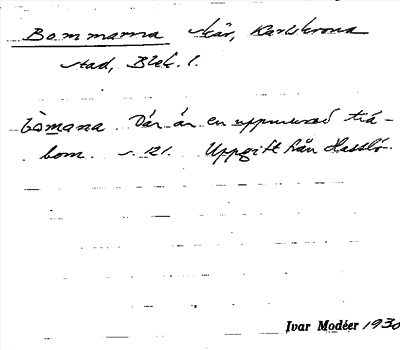 Bommarna skär, Karlskrona
stad, Blek. l.
bòmana. Där är en uppmurad trä-
bom. s. 121. Uppgift från Hasslö.
Ivar Modéer 1930